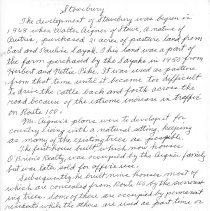 Stowebury
The development of Stowebury was begun in
1968 when Walter Aegner of Stowe, a native of
Austria, purchased 31 acres of pasture land from
Earl and Pauline Sayah. This land was a part of
the farm purchased by the Sayahs in 1950 from
Herbert and Nettie Pike. It was used as pasture
from that time until it became too difficult
to drive the cattle back and forth across the
road because of the extreme increase in traffic
on Route 100.
Mr. plans were to develop it for
country living with a natural setting, keeping
as many of the existing trees as possible.
The first house built, which now houses
O'Brien's Realty, was occupied by the family
but was later sold for offices.
Subsequently he built nine houses, most of
which are concealed from Route 100 by the
trees. Some of these are occupied by permanent
residents while the others are used as part time or